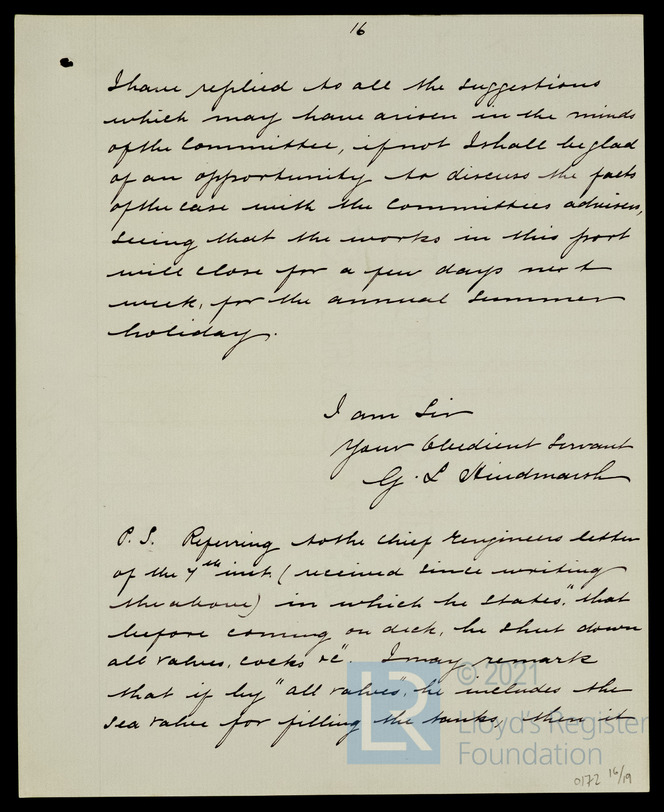 16
I have replied to all the suggestions
which may have arisen in the minds
of the Committee, if not I shall be glad
of an opportunity to discuss the facts
of the case with the Committees advisers,
seeing that the works in this port
will close for a few days next
week, for the annual summer
holiday.
I am Sir
Your Obedient Servant
G. L Hindmarsh
P. S. Referring to the Chief Engineers letter
of the 7th inst. (received since writing
the above) in which he states, "that
before coming on deck, he shut down
all valves, cocks &c". I may remark
that if by "all valves", he includes the
sea valve for filling the tanks, then it
© 2021
Lloyd's Register
Foundation
LR
0172 16/19